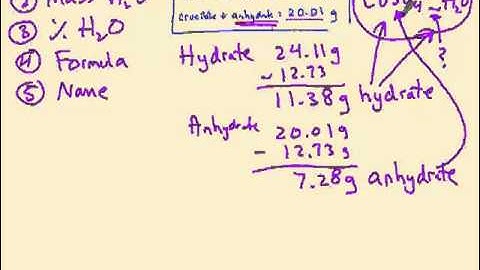 ② Mass H₂O
crucible + anhydrate = 20.01 g
CuSO₄ ~ H₂O
③ % H₂O
?
④ Formula
⑤ Name
Hydrate 24.11g
- 12.73
11.38g hydrate
Anhydrate 20.01g
- 12.73g
7.28g anhydrate